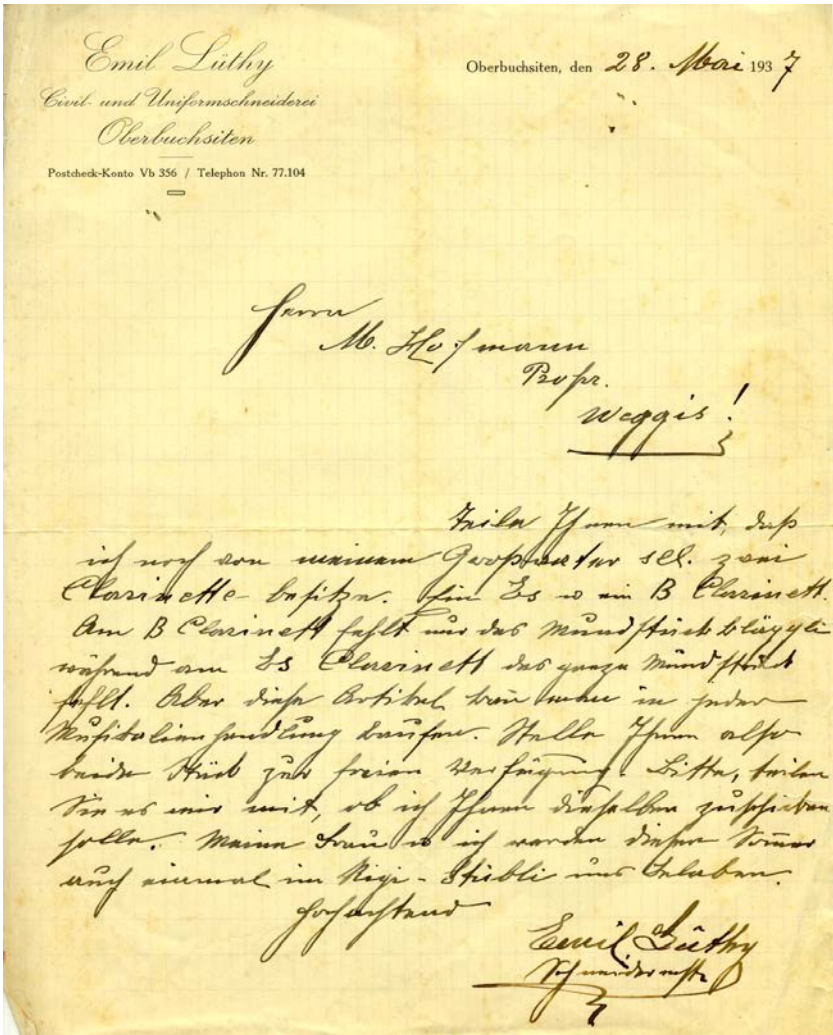 Emil Lüthy
Civil- und Uniformschneiderei
Oberbuchsiten
Postcheck-Konto Vb 356 / Telephon Nr. 77.104
Oberbuchsiten, den 28. Mai 1937
Herrn
M. Hofmann
Propr.
Weggis!
Teile Ihnen mit, daß
ich noch von meinem Großvater sel. zwei
Clarinette besitze. Ein Es u ein B Clarinett.
Am B Clarinett fehlt nur das Mundstückbläggli
während am Es Clarinett das ganze Mundstück
fehlt. Aber diese Artikel kann man in jeder
Musikalienhandlung kaufen. Stelle Ihnen also
beide Stück zur freien Verfügung. Bitte, teilen
Sie es mir mit, ob ich Ihnen dieselben zuschicken
solle. Meine Frau u ich werden diesen Sommer
auch einmal im Rigi-Stübli uns erlaben.
Hochachtend
Emil Lüthy